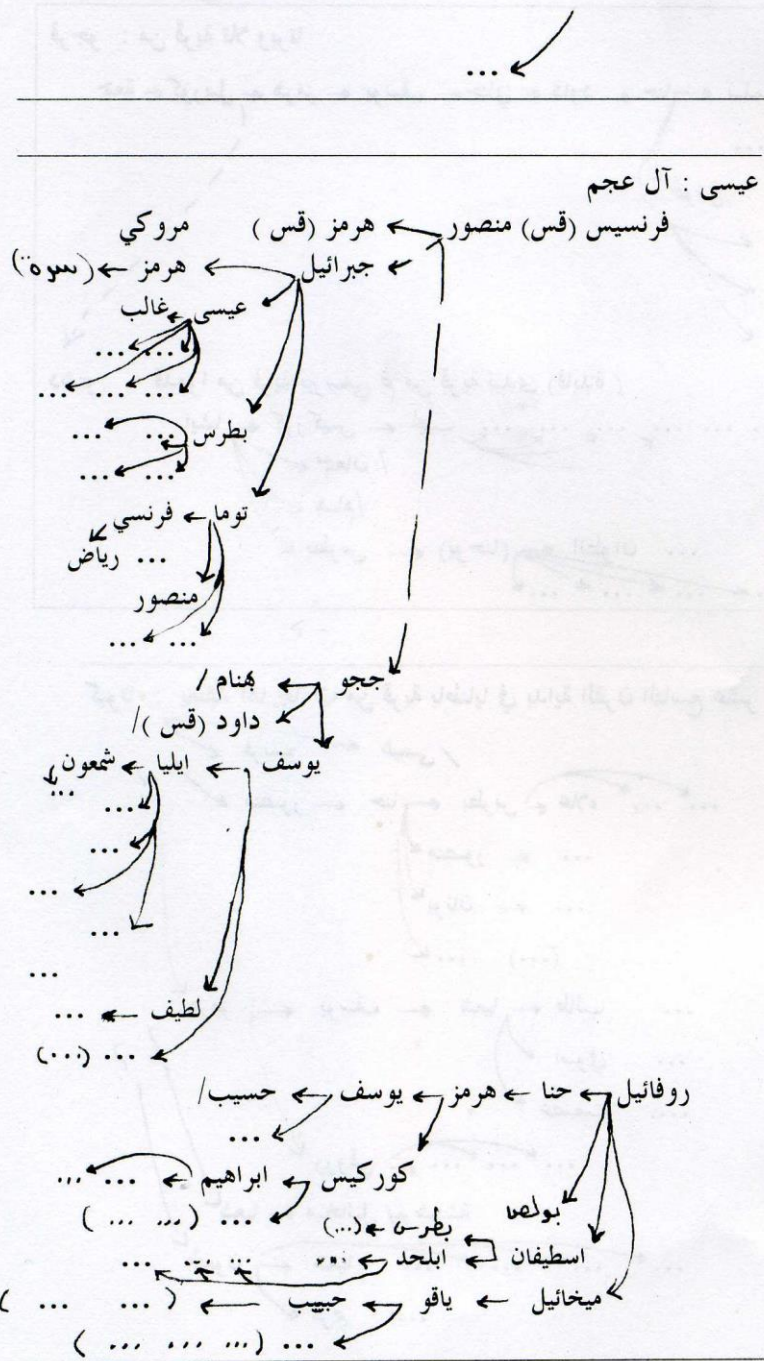 ...
عيسى : آل عجم
فرنسيس (قس) منصور ← هرمز (قس ) مروكي
جبرائيل ← هرمز ←
عيسى ← غالب
... ...
... ... ... ...
بطرس ... ...
... ...
توما ← فرنسي
... رياض
منصور
... ...
ججو ← هنام /
داود (قس )/
يوسف ← ايليا ← شمعون
...
...
...
...
...
...
لطيف ← ...
... (...)
روفائيل ← حنا ← هرمز ← يوسف ← حسيب/
...
كوركيس ← ابراهيم ← ... ...
... (... ... )
بولص
بطرس ← (...)
اسطيفان ← ابلحد ← ... ... ... ...
ميخائيل ← ياقو ← حبيب ← ( ... ... )
... (... ... ... ... )